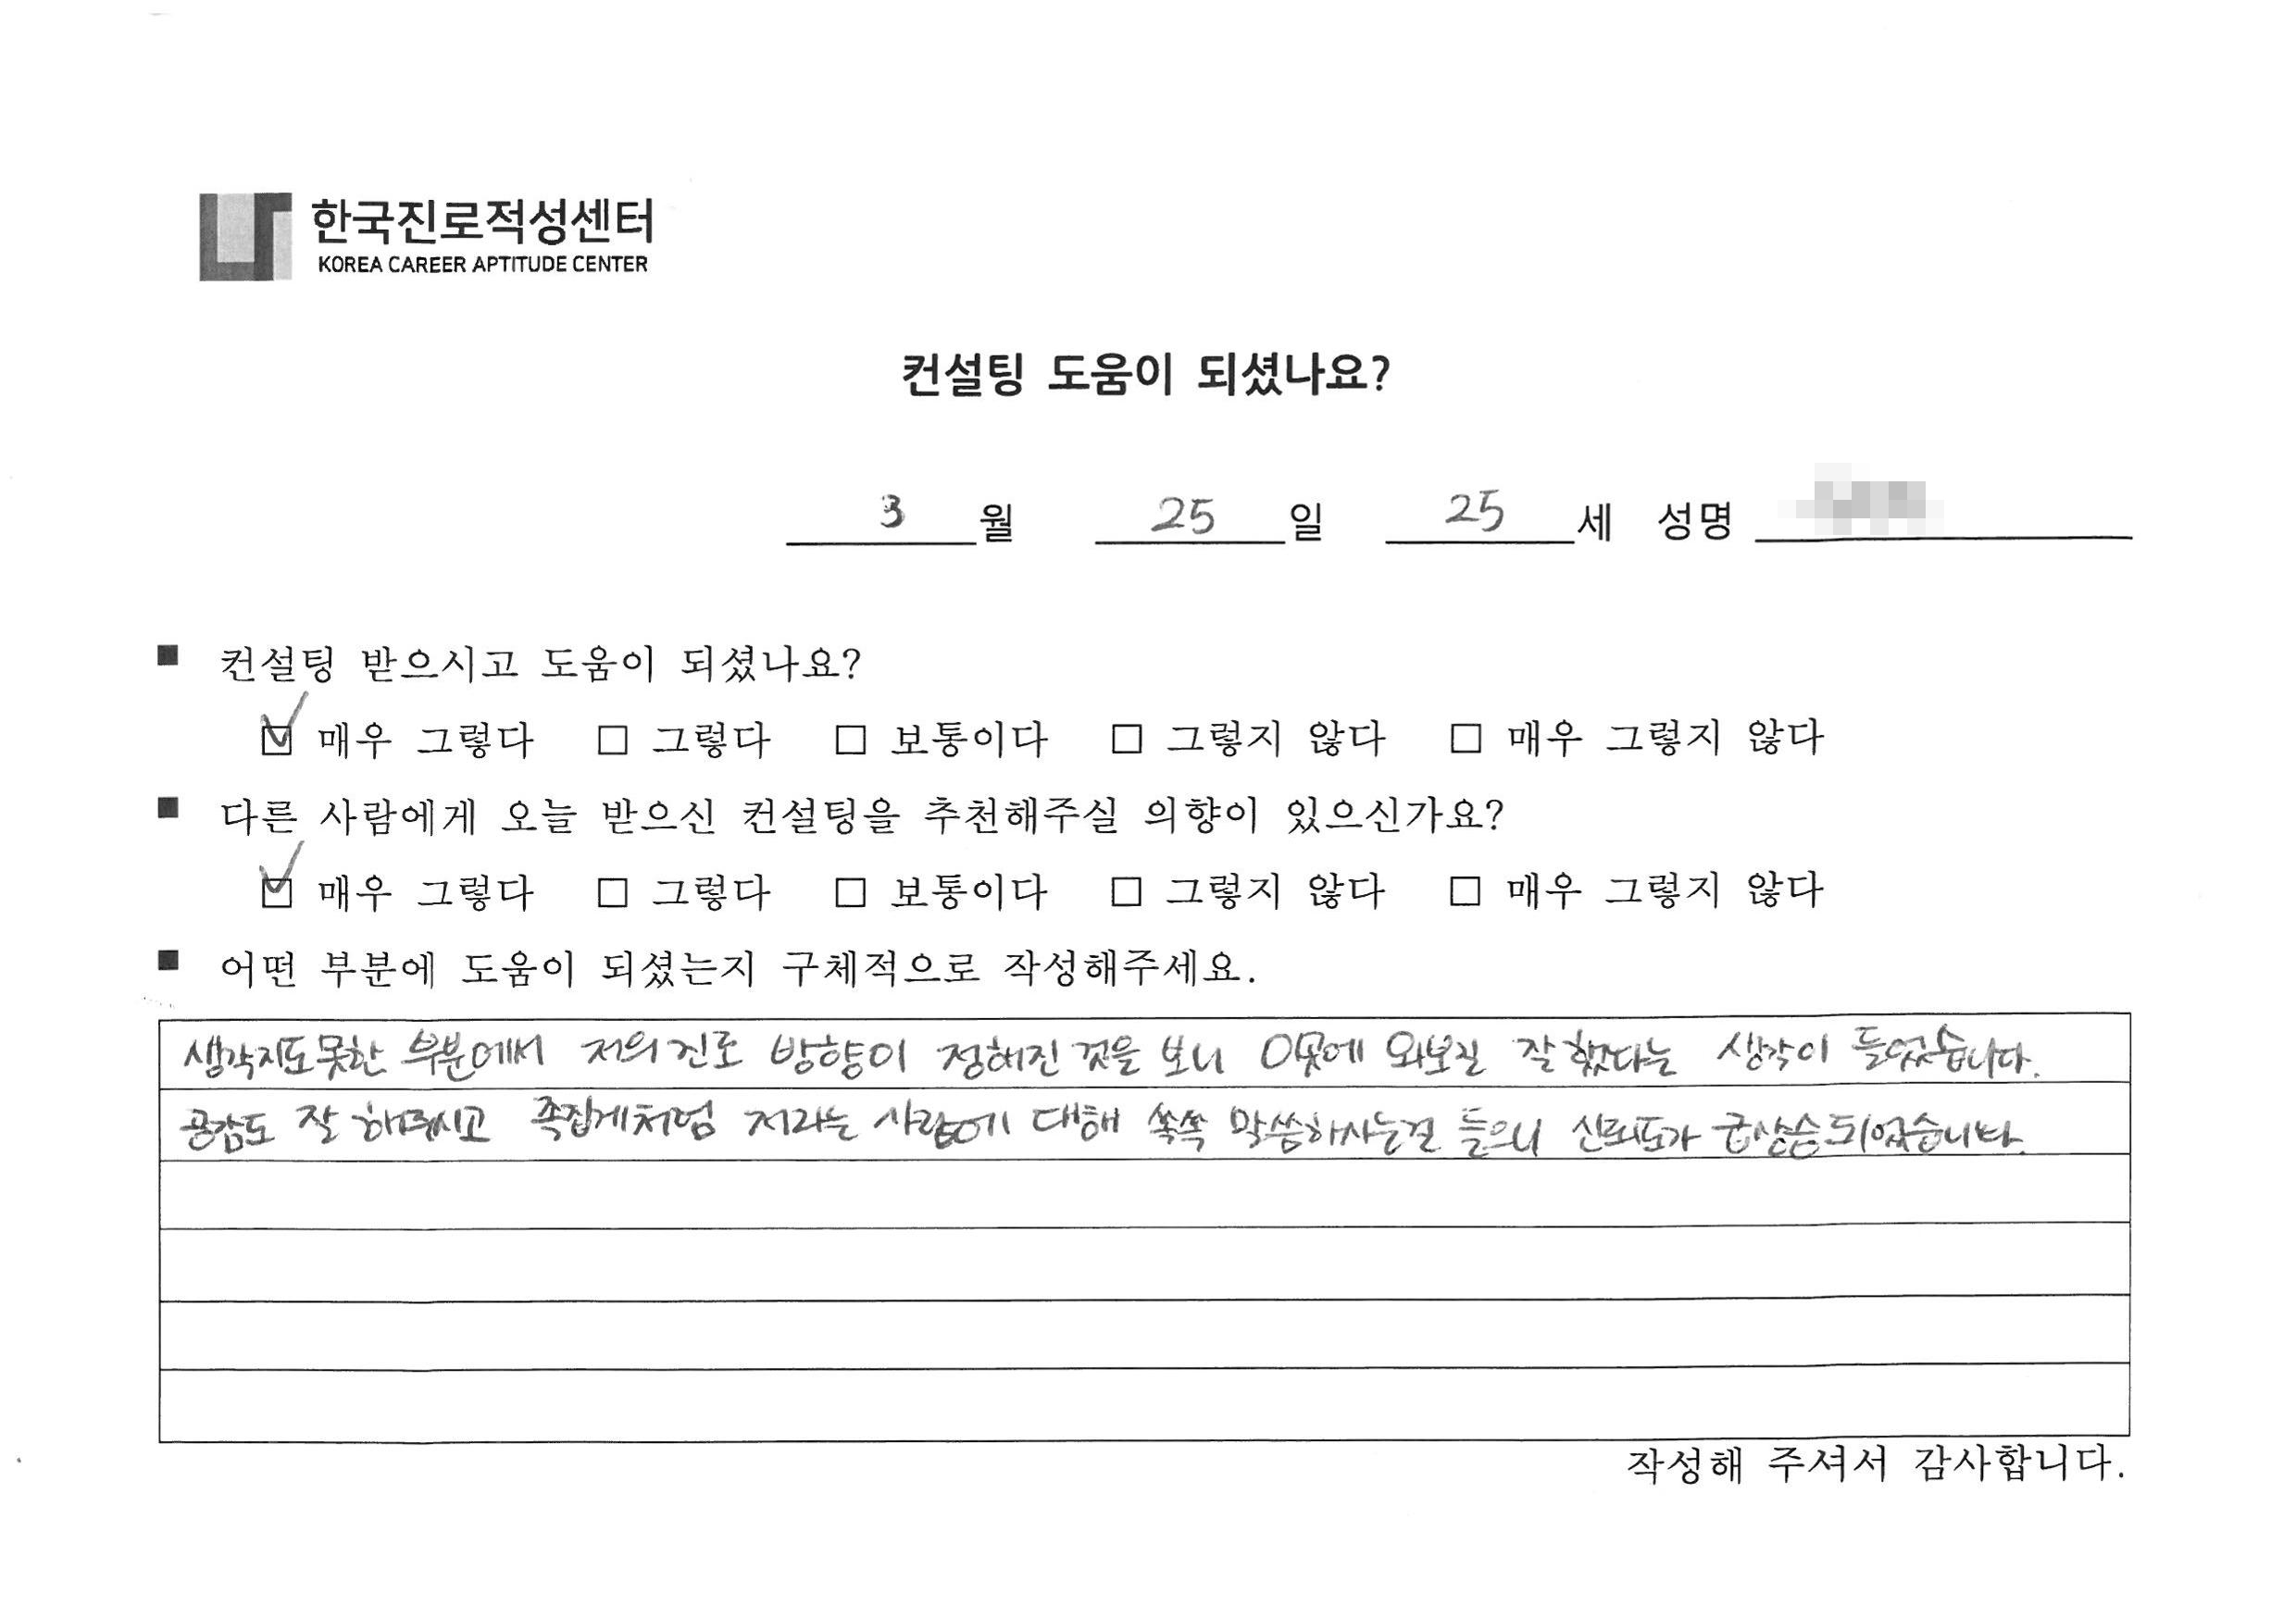 한국진로적성센터
KOREA CAREER APTITUDE CENTER
컨설팅 도움이 되셨나요?
3 월 25 일 25 세 성명
■ 컨설팅 받으시고 도움이 되셨나요?
☑ 매우 그렇다 □ 그렇다 □ 보통이다 □ 그렇지 않다 □ 매우 그렇지 않다
■ 다른 사람에게 오늘 받으신 컨설팅을 추천해주실 의향이 있으신가요?
☑ 매우 그렇다 □ 그렇다 □ 보통이다 □ 그렇지 않다 □ 매우 그렇지 않다
■ 어떤 부분에 도움이 되셨는지 구체적으로 작성해주세요.
생각지도못한 부분에서 저의 진로 방향이 정해진 것을 보니 이곳에 와보길 잘했다는 생각이 들었습니다.
공감도 잘 해주시고 족집게처럼 저라는 사람에 대해 쏙쏙 말씀하시는걸 들으니 신뢰도가 급상승되었습니다.
작성해 주셔서 감사합니다.